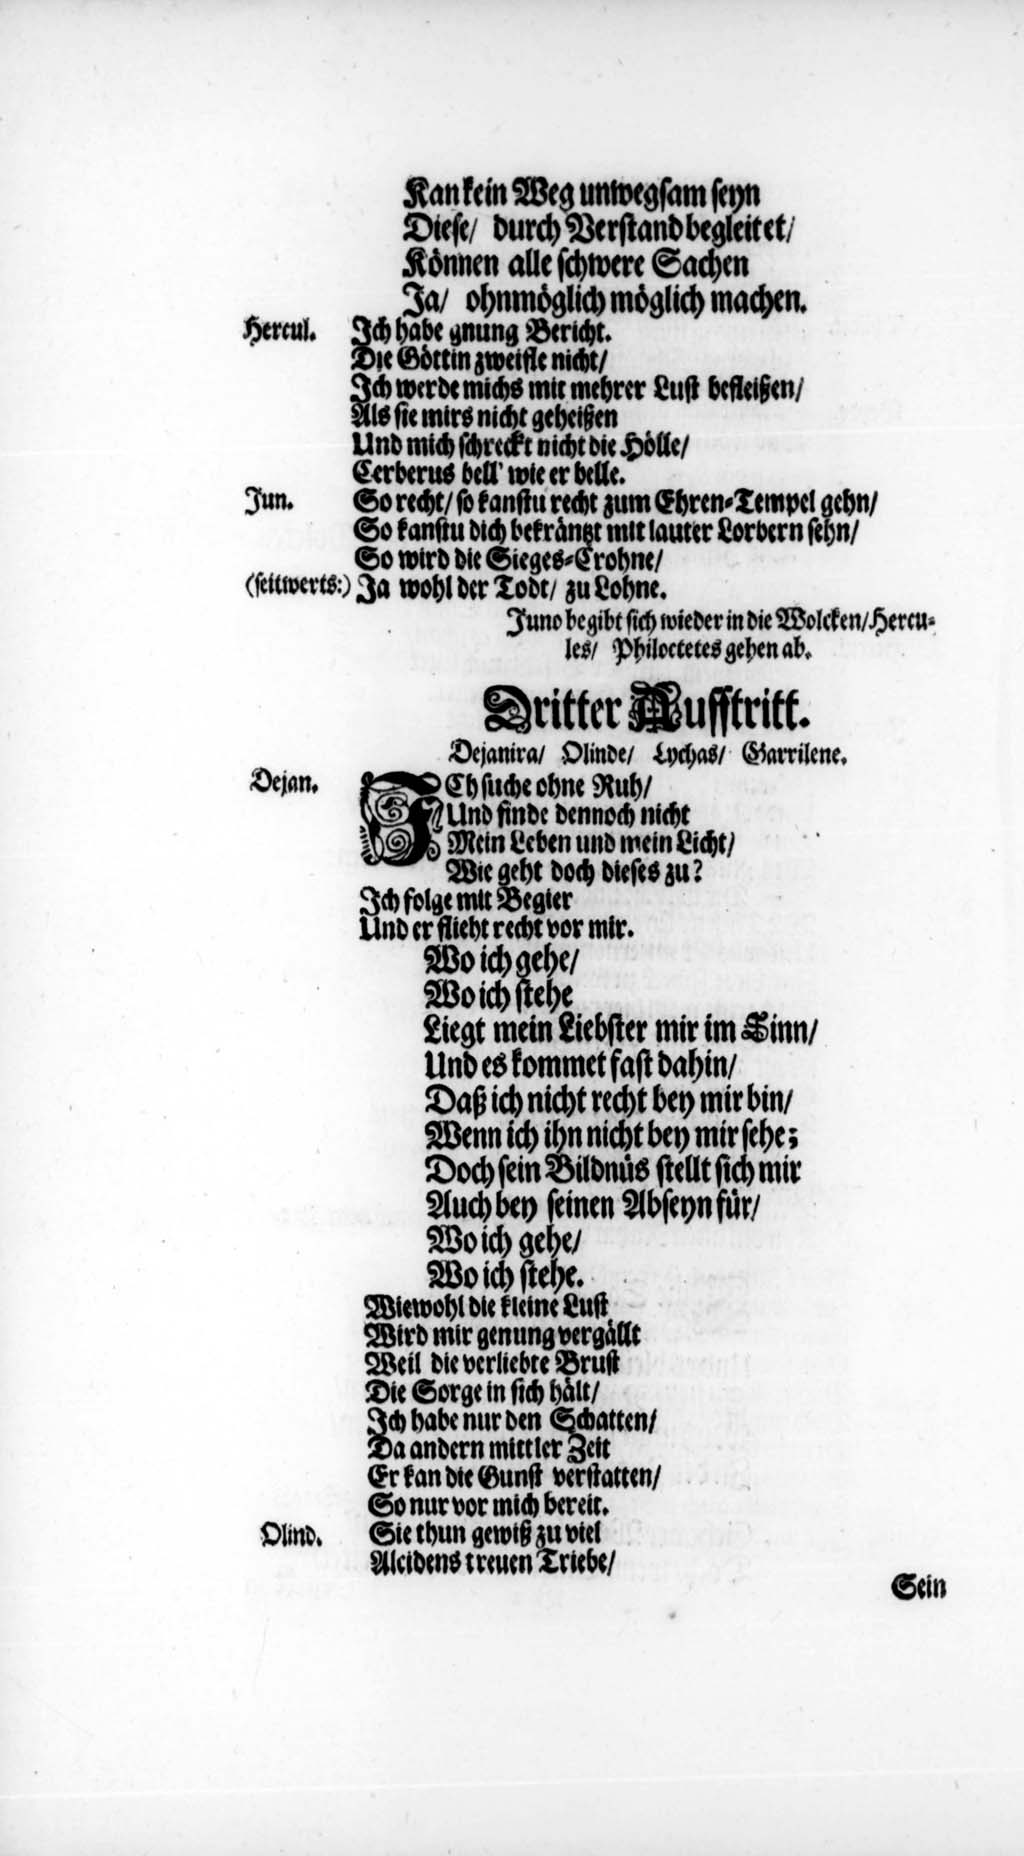 Kan kein Weg unwegsam seyn
Diese/ durch Verstand begleitet/
Können alle schwere Sachen
Ja/ ohnmöglich möglich machen.
Hercul. Ich habe gnung Bericht.
Die Göttin zweifle nicht/
Ich werde michs mit mehrer Lust befleißen/
Als sie mirs nicht geheißen
Und mich schreckt nicht die Hölle/
Cerberus bell' wie er belle.
Jun. So recht/ so kanstu recht zum Ehren-Tempel gehn/
So kanstu dich bekräntzt mit lauter Lorbern sehn/
So wird die Sieges-Crohne/
(seitwerts:) Ja wohl der Todt/ zu Lohne.
Juno begibt sich wieder in die Wolcken/ Hercu-
les/ Philoctetes gehen ab.
Dritter Aufftritt.
Dejanira/ Olinde/ Lychas/ Garrilene.
Dejan. ICh suche ohne Ruh/
Und finde dennoch nicht
Mein Leben und mein Licht/
Wie geht doch dieses zu?
Ich folge mit Begier
Und er flieht recht vor mir.
Wo ich gehe/
Wo ich stehe
Liegt mein Liebster mir im Sinn/
Und es kommet fast dahin/
Daß ich nicht recht bey mir bin/
Wenn ich ihn nicht bey mir sehe;
Doch sein Bildnüs stellt sich mir
Auch bey seinen Abseyn für/
Wo ich gehe/
Wo ich stehe.
Wiewohl die kleine Lust
Wird mir genung vergällt
Weil die verliebte Brust
Die Sorge in sich hält/
Ich habe nur den Schatten/
Da andern mittler Zeit
Er kan die Gunst verstatten/
So nur vor mich bereit.
Olind. Sie thun gewiß zu viel
Alcidens treuen Triebe/
Sein